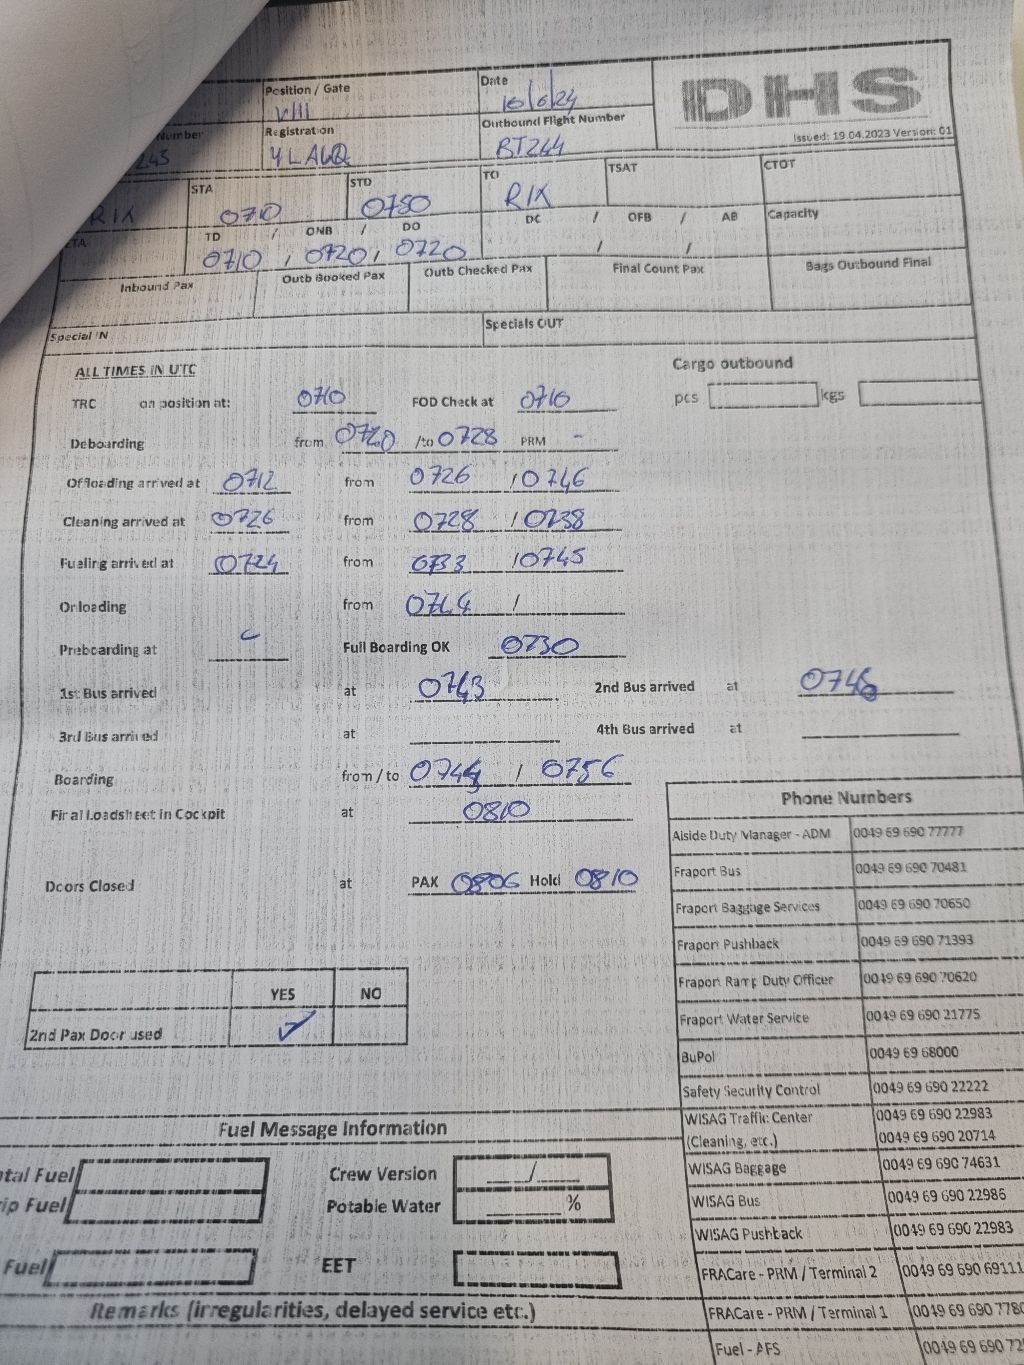 Position / Gate
Date
DHS
V111
16/6/24
Number
Registration
Outbound Flight Number
Issued: 19.04.2023 Version: 01
243
YLAUQ
BT244
STA
STD
TO
TSAT
CTOT
RIX
0710
0750
RIX
TD / ONB / DO
DC / OFB / AB
Capacity
0710 / 0720 / 0720
/ /
Inbound Pax
Outb Booked Pax
Outb Checked Pax
Final Count Pax
Bags Outbound Final
Special IN
Specials OUT
ALL TIMES IN UTC
Cargo outbound
TRC on position at: 0710 FOD Check at 0710
pcs kgs
Deboarding from 0720 /to 0728 PRM -
Offloading arrived at 0712 from 0726 / 0746
Cleaning arrived at 0726 from 0728 / 0738
Fueling arrived at 0724 from 0733 / 0745
Onloading from 0744 /
Preboarding at Full Boarding OK 0730
1st Bus arrived at 0743 2nd Bus arrived at 0748
3rd Bus arrived at 4th Bus arrived at
Boarding from / to 0744 / 0756
Final Loadsheet in Cockpit at 0810
Doors Closed at PAX 0806 Hold 0810
Phone Numbers
Aiside Duty Manager - ADM 0049 69 690 77777
Fraport Bus 0049 69 690 70481
Fraport Baggage Services 0049 69 690 70650
Fraport Pushback 0049 69 690 71393
Fraport Ramp Duty Officer 0049 69 690 70620
Fraport Water Service 0049 69 690 21775
BuPol 0049 69 68000
Safety Security Control 0049 69 690 22222
WISAG Traffic Center 0049 69 690 22983
(Cleaning, etc.) 0049 69 690 20714
WISAG Baggage 0049 69 690 74631
WISAG Bus 0049 69 690 22986
WISAG Pushback 0049 69 690 22983
FRACare - PRM / Terminal 2 0049 69 690 69111
FRACare - PRM / Terminal 1 0049 69 690 7780
Fuel - AFS 0049 69 690 72
YES NO
2nd Pax Door used ✓
Fuel Message Information
tal Fuel
Crew Version /
ip Fuel
Potable Water %
Fuel
EET
Remarks (irregularities, delayed service etc.)